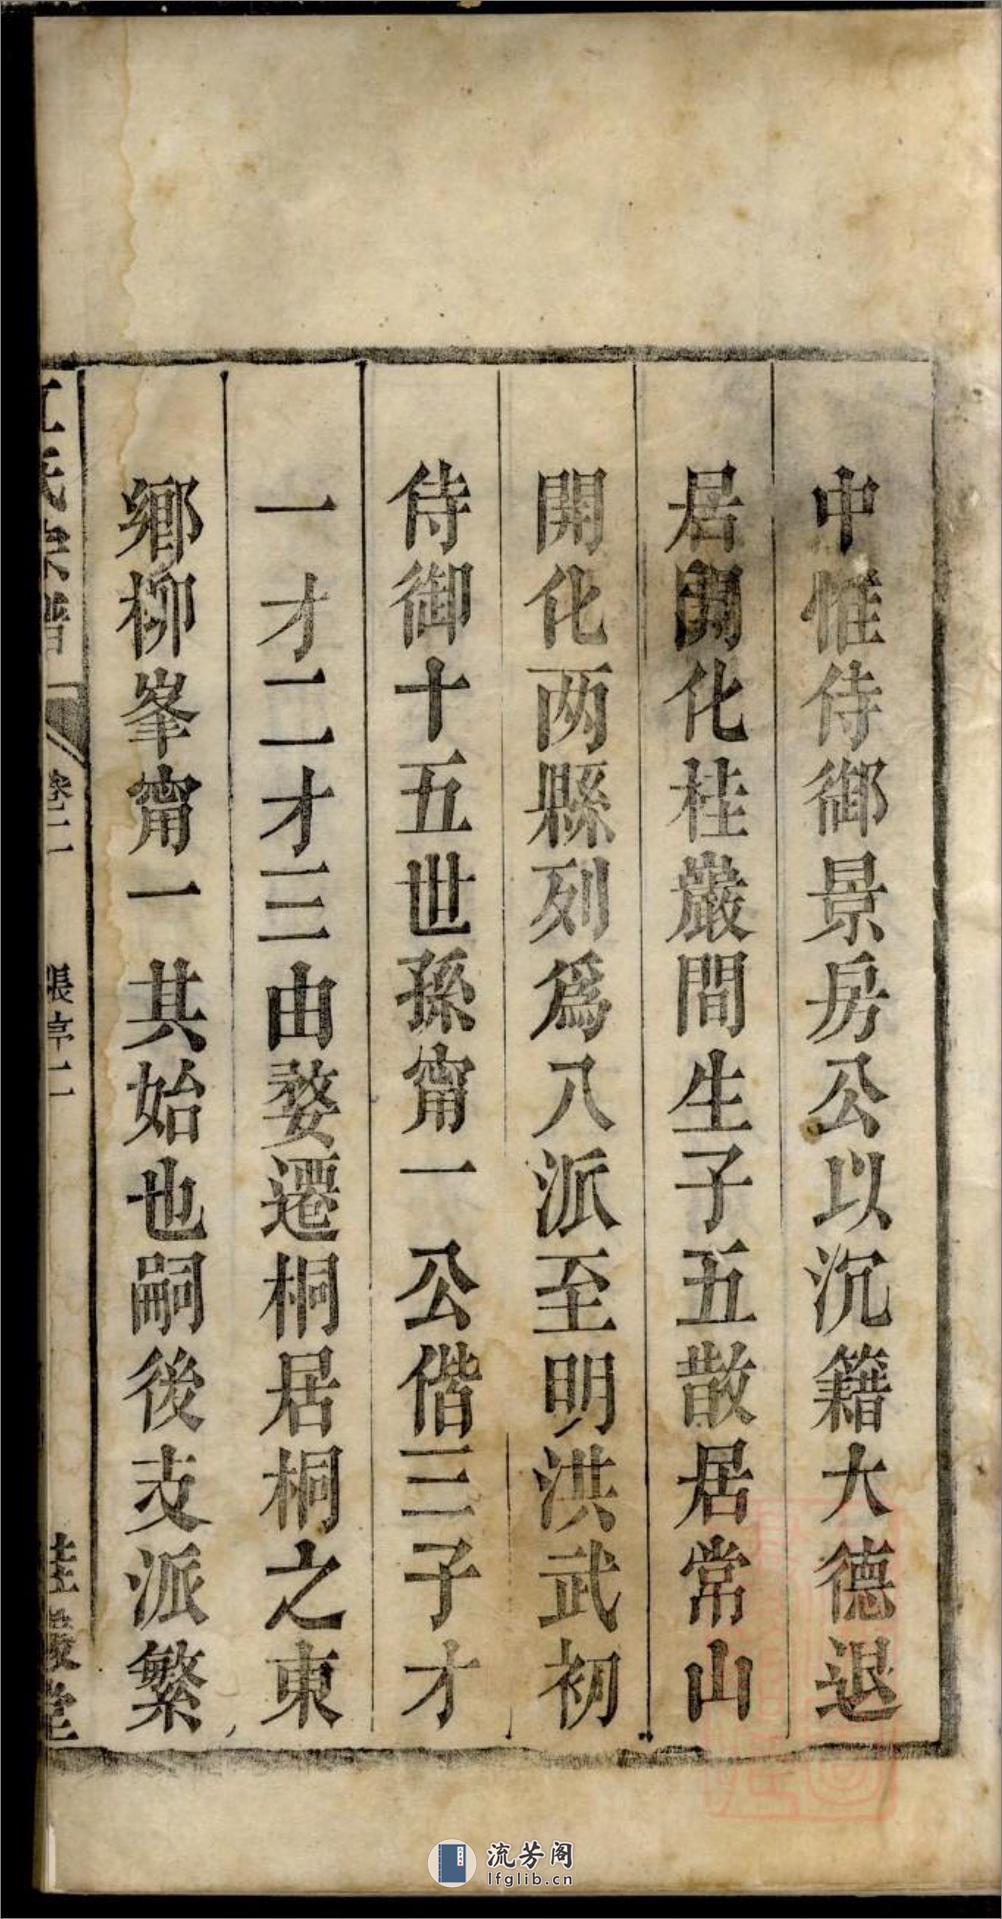 中惟侍御景房公以沉籍大德退
居開化桂巖間生子五散居常山
開化两縣列爲八派至明洪武初
侍御十五世孫甯一公偕三子才
一才二才三由婺遷桐居桐之東
鄉柳峯甯一其始也嗣後支派繁
江氏宗譜
卷二
張序二
桂巖堂
流芳阁
lfglib.cn